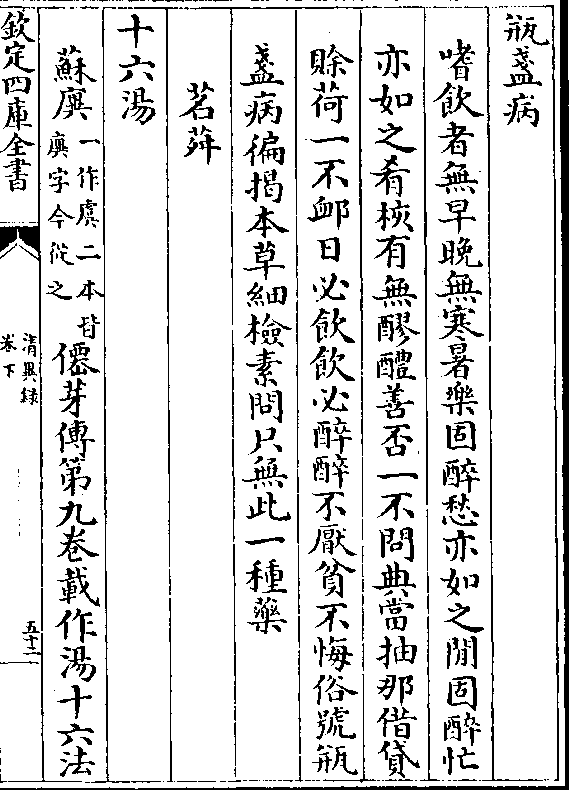 瓶盞病
嗜飲者無早晚無寒暑樂固醉愁亦如之閒固醉忙
亦如之肴核有無醪醴善否一不問典當抽那借貸
賖荷一不䘏日必飲飲必醉醉不厭貧不悔俗號瓶
盞病徧揭本草細檢素問只無此一種藥
茗荈
十六湯
蘇廙一作虞二本皆廙字今從之僊芽傳第九卷載作湯十六法
欽定四庫全書
清異録
卷下
五十二